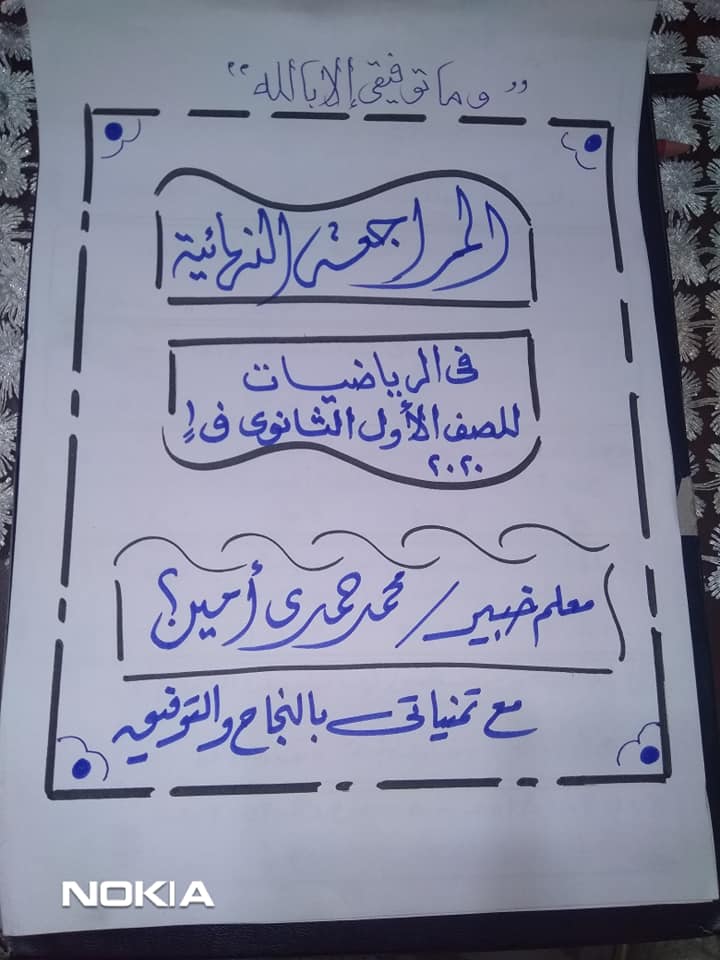 " وما توفيقى إلا بالله "
المراجعة النهائية
فى الرياضيات
للصف الأول الثانوى ف١
٢٠٢٠
معلم خبير / محمد حمدى أمين
مع تمنياتى بالنجاح والتوفيق
NOKIA